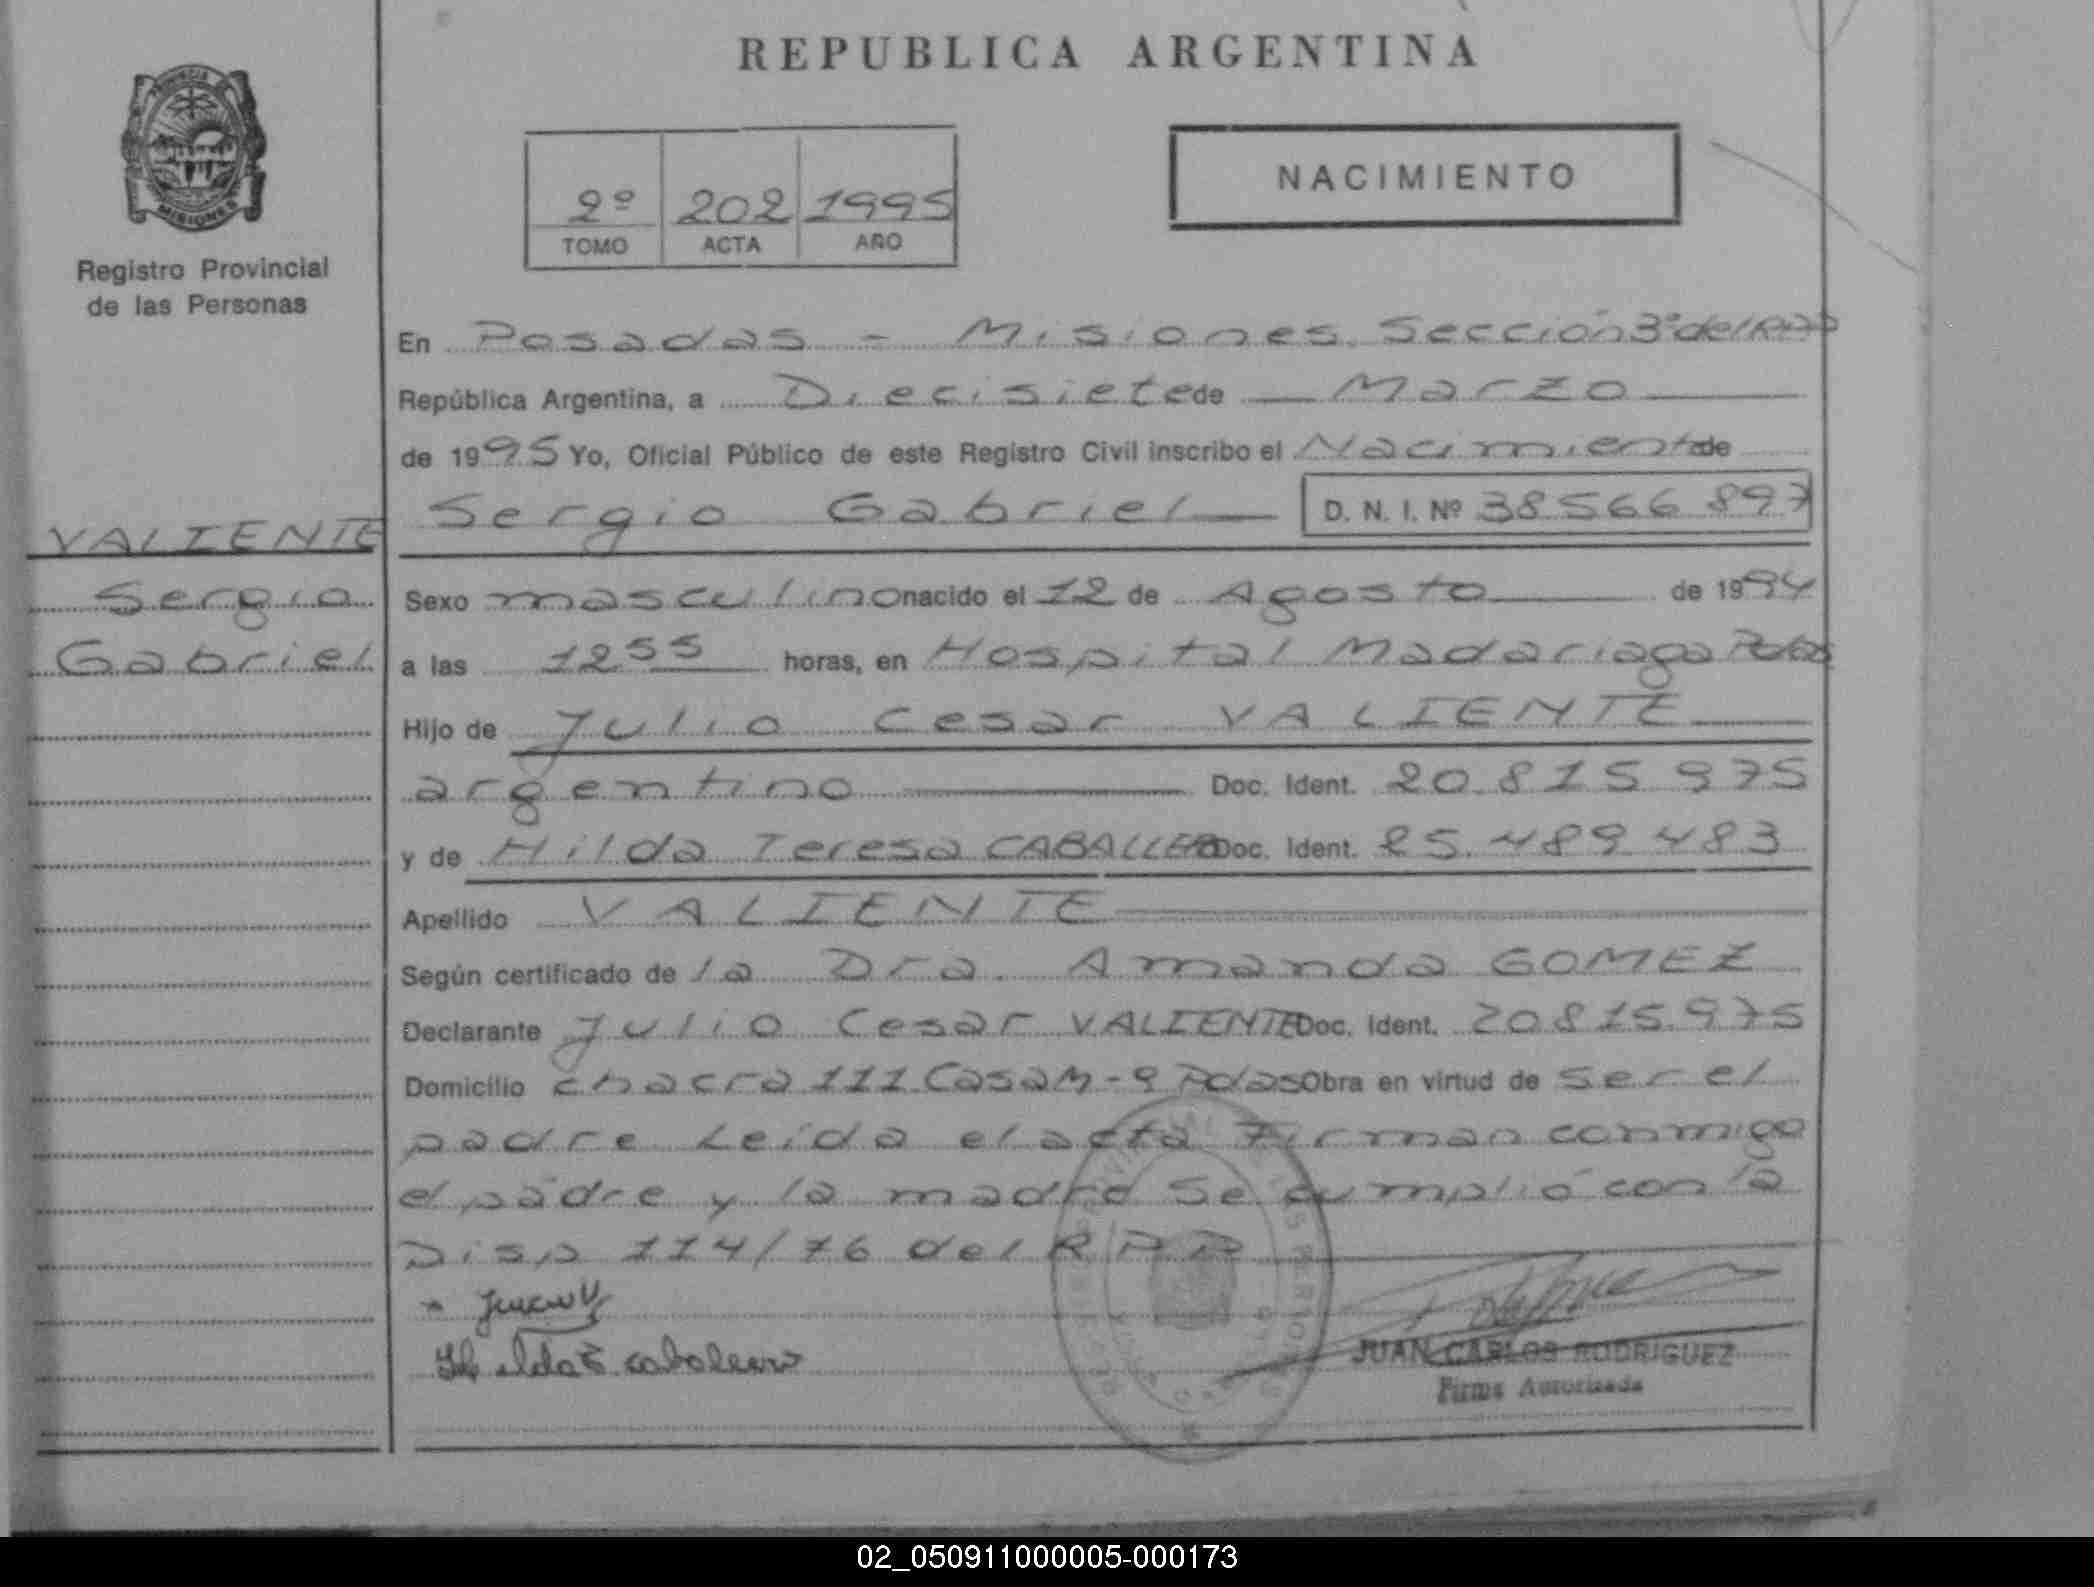 REPUBLICA ARGENTINA
PROVINCIA
MISIONES
Registro Provincial
de las Personas
2º 202 1995
TOMO ACTA AÑO
NACIMIENTO
En Posadas - Misiones. Sección 3º del RPP
República Argentina, a Diecisiete de Marzo
de 1995 Yo, Oficial Público de este Registro Civil inscribo el Nacimiento de
Sergio Gabriel D. N. I. Nº 38566 897
VALIENTE
Sergio
Gabriel
Sexo masculino nacido el 12 de Agosto de 1994
a las 12 55 horas, en Hospital Madariaga Pdas
Hijo de Julio Cesar VALIENTE
argentino Doc. Ident. 20.815 975
y de Hilda Teresa CABALLERO Doc. Ident. 25.489 483
Apellido VALIENTE
Según certificado de la Dra. Amanda GOMEZ
Declarante Julio Cesar VALIENTE Doc. Ident. 20815.975
Domicilio chacra 111 Casa M-9 Pdas Obra en virtud de ser el
padre Leída el acta Firman conmigo
el padre y la madre Se cumplió con la
Disp 114/76 del RPP
JUAN CARLOS RODRIGUEZ
Firma Autorizada
02_050911000005-000173